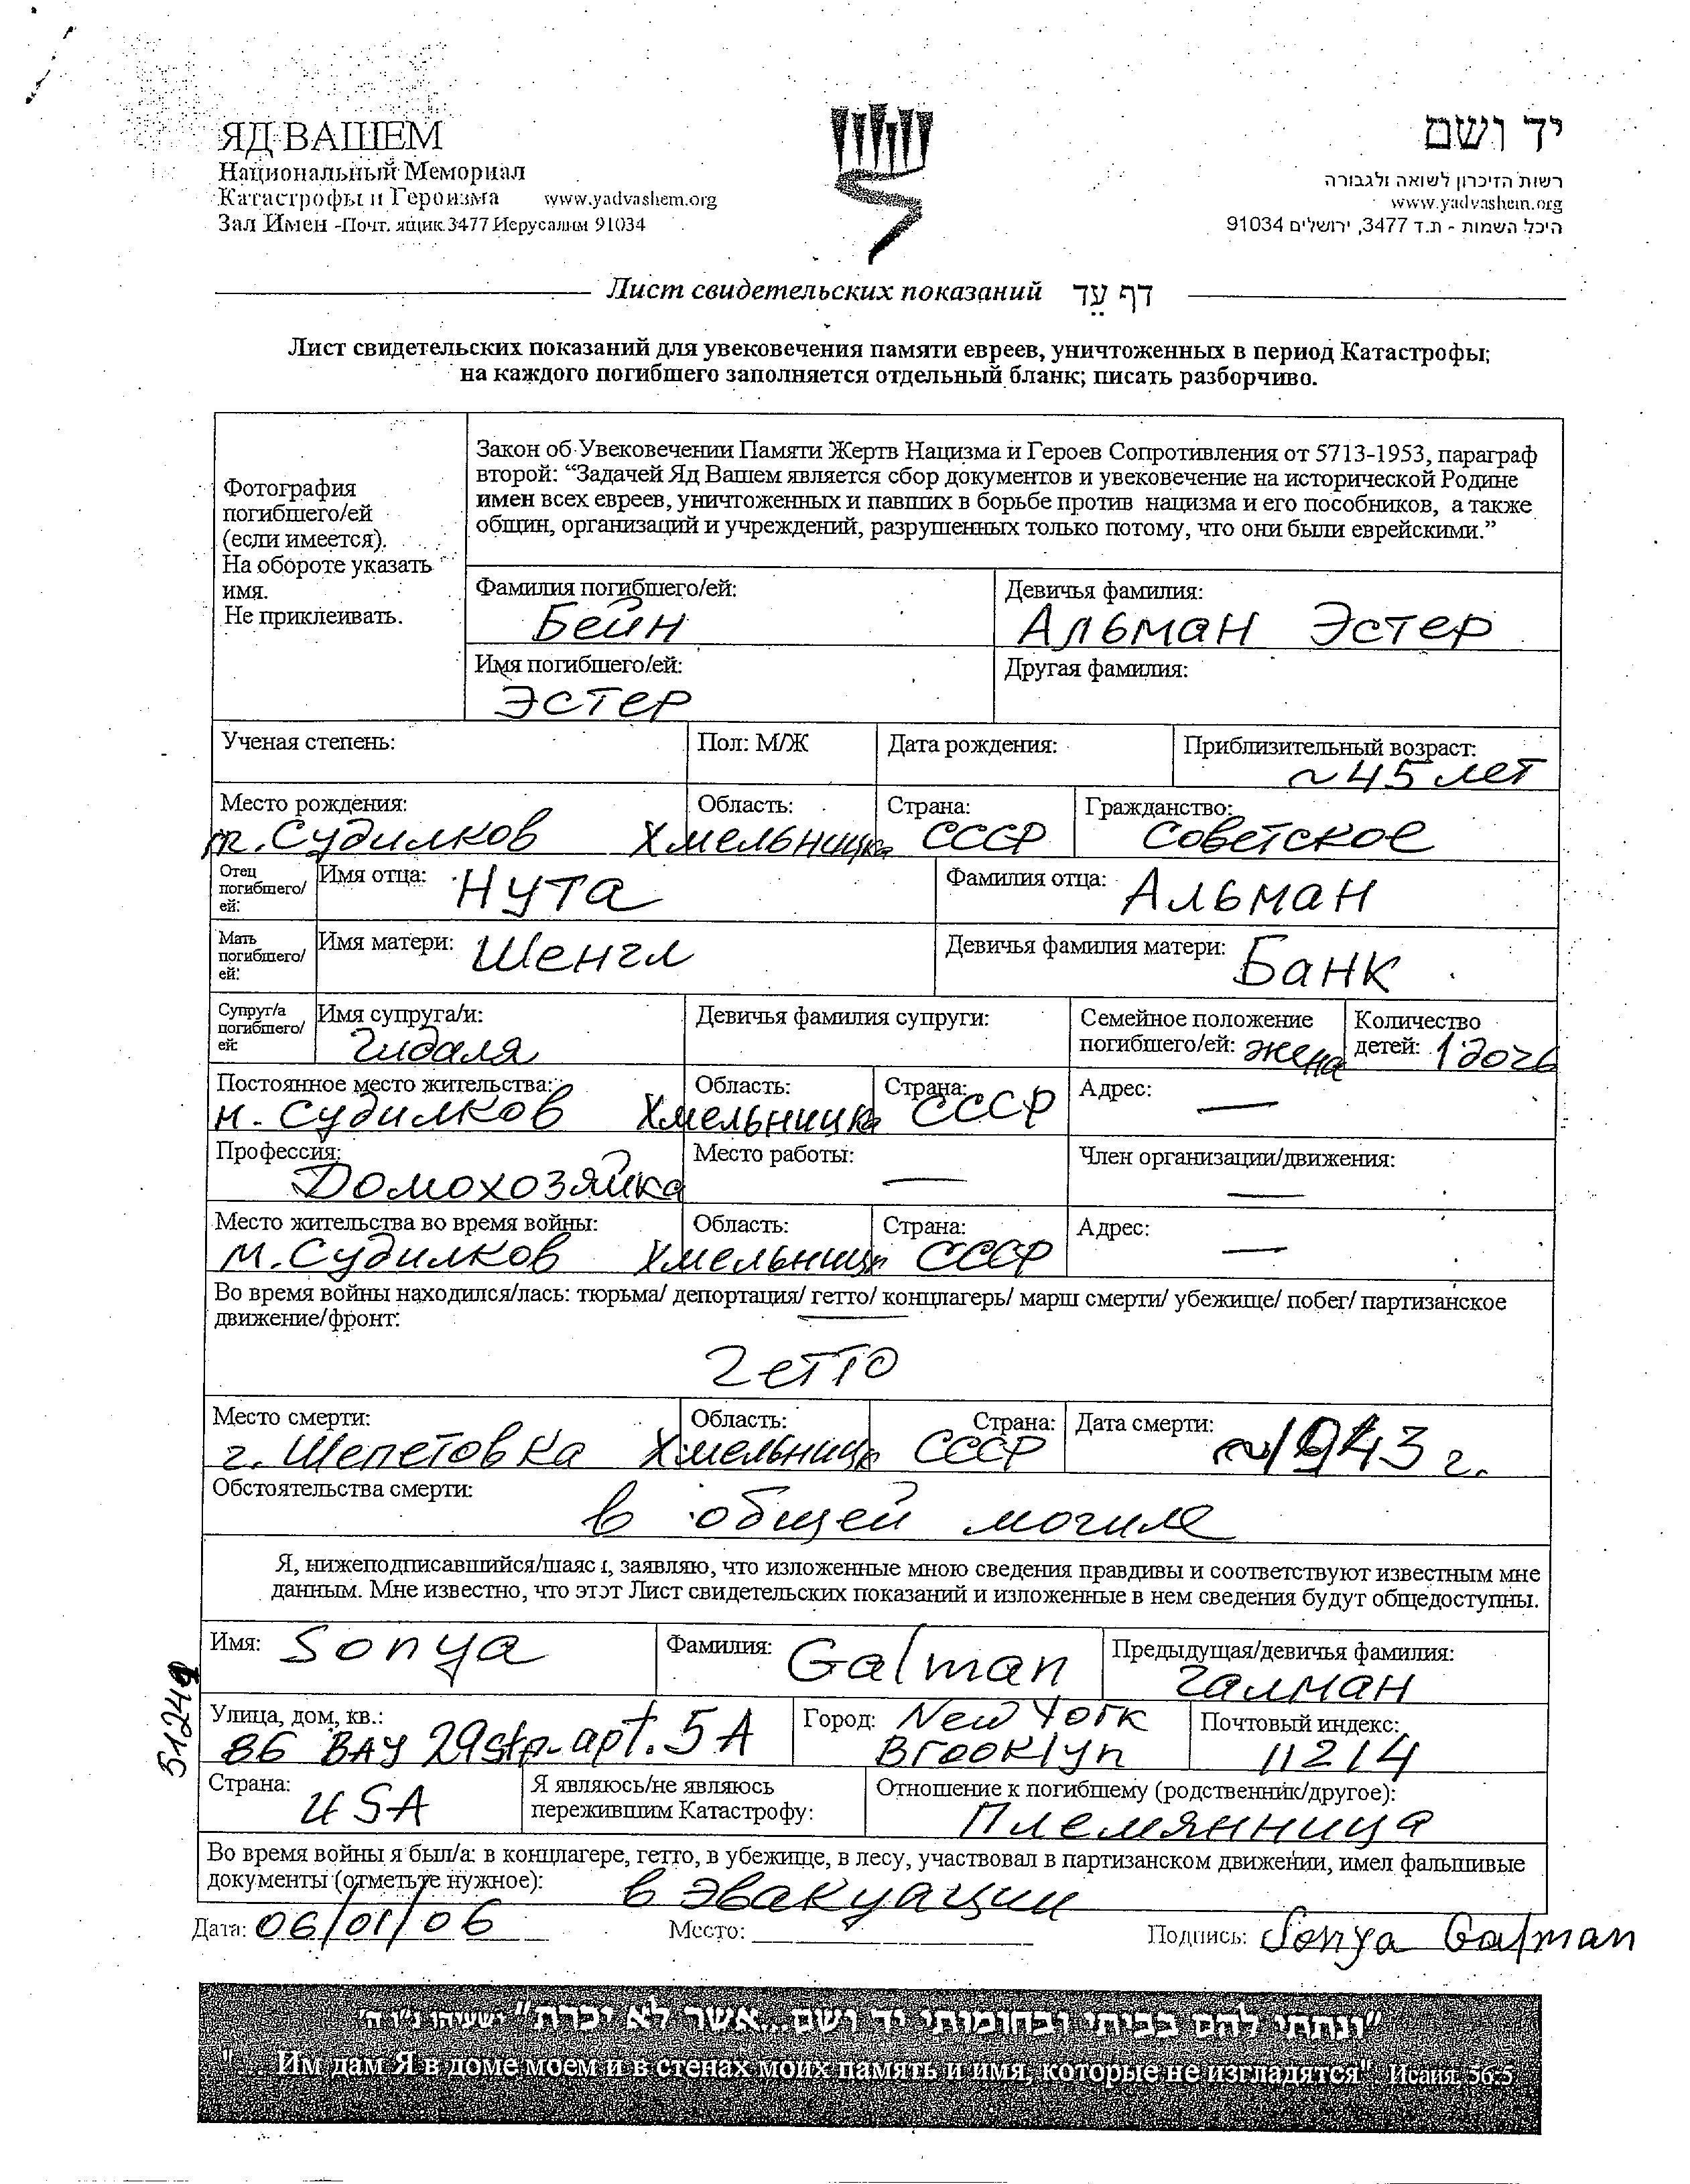 ЯД ВАШЕМ
Национальный Мемориал
Катастрофы и Героизма www.yadvashem.org
Зал Имен -Почт. ящик 3477 Иерусалим 91034
יד ושם
רשות הזיכרון לשואה ולגבורה
www.yadvashem.org
היכל השמות - ת.ד 3477, ירושלים 91034
Лист свидетельских показаний דף עֵד
Лист свидетельских показаний для увековечения памяти евреев, уничтоженных в период Катастрофы;
на каждого погибшего заполняется отдельный бланк; писать разборчиво.
Фотография
погибшего/ей
(если имеется).
На обороте указать
имя.
Не приклеивать.
Закон об Увековечении Памяти Жертв Нацизма и Героев Сопротивления от 5713-1953, параграф
второй: “Задачей Яд Вашем является сбор документов и увековечение на исторической Родине
имен всех евреев, уничтоженных и павших в борьбе против нацизма и его пособников, а также
общин, организаций и учреждений, разрушенных только потому, что они были еврейскими.”
Фамилия погибшего/ей: Девичья фамилия:
Бейн Альман Эстер
Имя погибшего/ей: Другая фамилия:
Эстер
Ученая степень: Пол: М/Ж Дата рождения: Приблизительный возраст:
~45 лет
Место рождения: Область: Страна: Гражданство:
м. Судилков Хмельницка СССР Советское
Отец
погибшего/
ей:
Имя отца: Нута Фамилия отца: Альман
Мать
погибшего/
ей:
Имя матери: Шенгл Девичья фамилия матери: Банк
Супруг/а
погибшего/
ей:
Имя супруга/и: Девичья фамилия супруги: Семейное положение Количество
Гидаля погибшего/ей: жена детей: 1 дочь
Постоянное место жительства: Область: Страна: Адрес:
м. Судилков Хмельницка СССР —
Профессия: Место работы: Член организации/движения:
Домохозяйка — —
Место жительства во время войны: Область: Страна: Адрес:
м. Судилков Хмельницк СССР —
Во время войны находился/лась: тюрьма/ депортация/ гетто/ концлагерь/ марш смерти/ убежище/ побег/ партизанское
движение/фронт:
гетто
Место смерти: Область: Страна: Дата смерти:
г. Шепетовка Хмельницк СССР ~1943 г.
Обстоятельства смерти:
в общей могиле
Я, нижеподписавшийся/шаяся, заявляю, что изложенные мною сведения правдивы и соответствуют известным мне
данным. Мне известно, что этот Лист свидетельских показаний и изложенные в нем сведения будут общедоступны.
Имя: Sonya Фамилия: Galman Предыдущая/девичья фамилия:
Галман
Улица, дом, кв.: Город: New York Почтовый индекс:
86 BAY 29 str. apt. 5A Brooklyn 11214
Страна: USA Я являюсь/не являюсь Отношение к погибшему (родственник/другое):
пережившим Катастрофу: Племянница
Во время войны я был/а: в концлагере, гетто, в убежище, в лесу, участвовал в партизанском движении, имел фальшивые
документы (отметьте нужное): в эвакуации
Дата: 06/01/06 Место: Подпись: Sonya Galman
"ונתתי להם בביתי ובחומותי יד ושם...אשר לא יכרת" ישעיהו נ"ו ה'
"... Им дам Я в доме моем и в стенах моих память и имя, которые не изгладятся" Исаия, 56:5